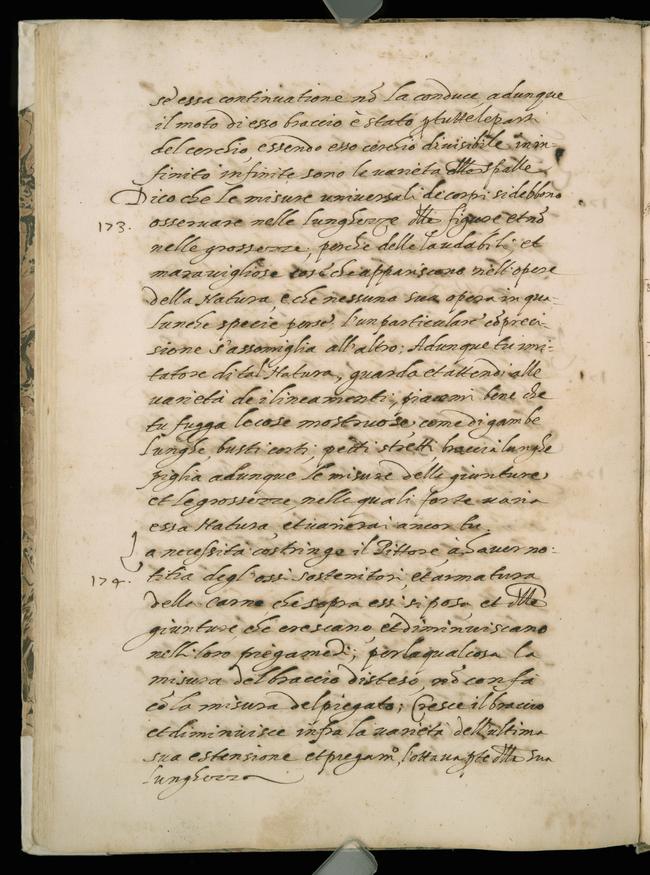 se essa continuatione nõ la conduce, adunque
il moto di esso braccio è stato p tutte le parti
del cerchio, essendo esso cerchio divisibile in in-
finito infinite sono le varietà dlle spalle
Dico che le misure universali de corpi si debbono
173.
osservare nelle lunghezze dlle figure et nõ
nelle grossezze, perche delle laudabili et
maravigliose cose che appariscono nell'opere
della Natura, è che nessuna sua opera in qua-
lunche specie perse, l'un particulare cõ preci-
sione s'assomiglia all'altro; Adunque tu imi-
tatore di tal Natura, guarda et attendi alle
varietà de i lineamenti, piacemi bene che
tu fugga le cose mostruose come di gambe
lunghe busti corti, petti stretti, braccia lunghe
piglia adunque le misure delle giunture
et le grossezze, nelle quali forte varia
essa Natura et varierai ancor tu.
La necessità costringe il Pittore à haver no-
174.
titia degl'ossi sostenitori, et armatura
della carne che sopra essi si posa et dlle
giunture che crescano et diminuiscano
nelli loro piegamẽti; per la qual cosa la
misura del braccio disteso, nõ confà
cõ la misura del piegato; Cresce il braccio
et diminuisce infra la varietà dell'ultima
sua estensione et piegamo, l'ottava pte dlla sua
lunghezza